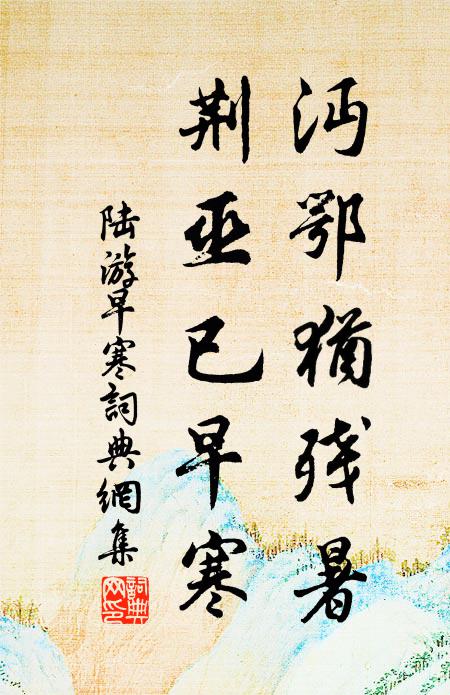 沔鄂猶残暑
荆巫已早寒
陆游早寒詞典網集
詞典